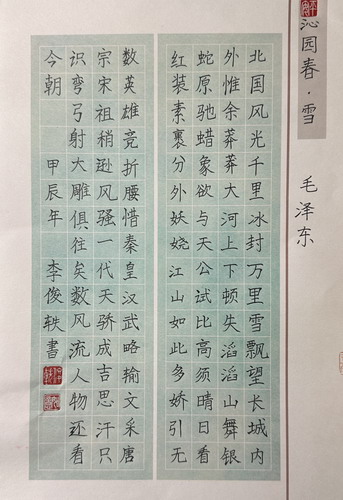 沁园春·雪
毛泽东
北国风光千里冰封万里雪飘望长城内
外惟余莽莽大河上下顿失滔滔山舞银
蛇原驰蜡象欲与天公试比高须晴日看
红装素裹分外妖娆江山如此多娇引无
数英雄竞折腰惜秦皇汉武略输文采唐
宗宋祖稍逊风骚一代天骄成吉思汗只
识弯弓射大雕俱往矣数风流人物还看
今朝 甲辰年 李俊轶書